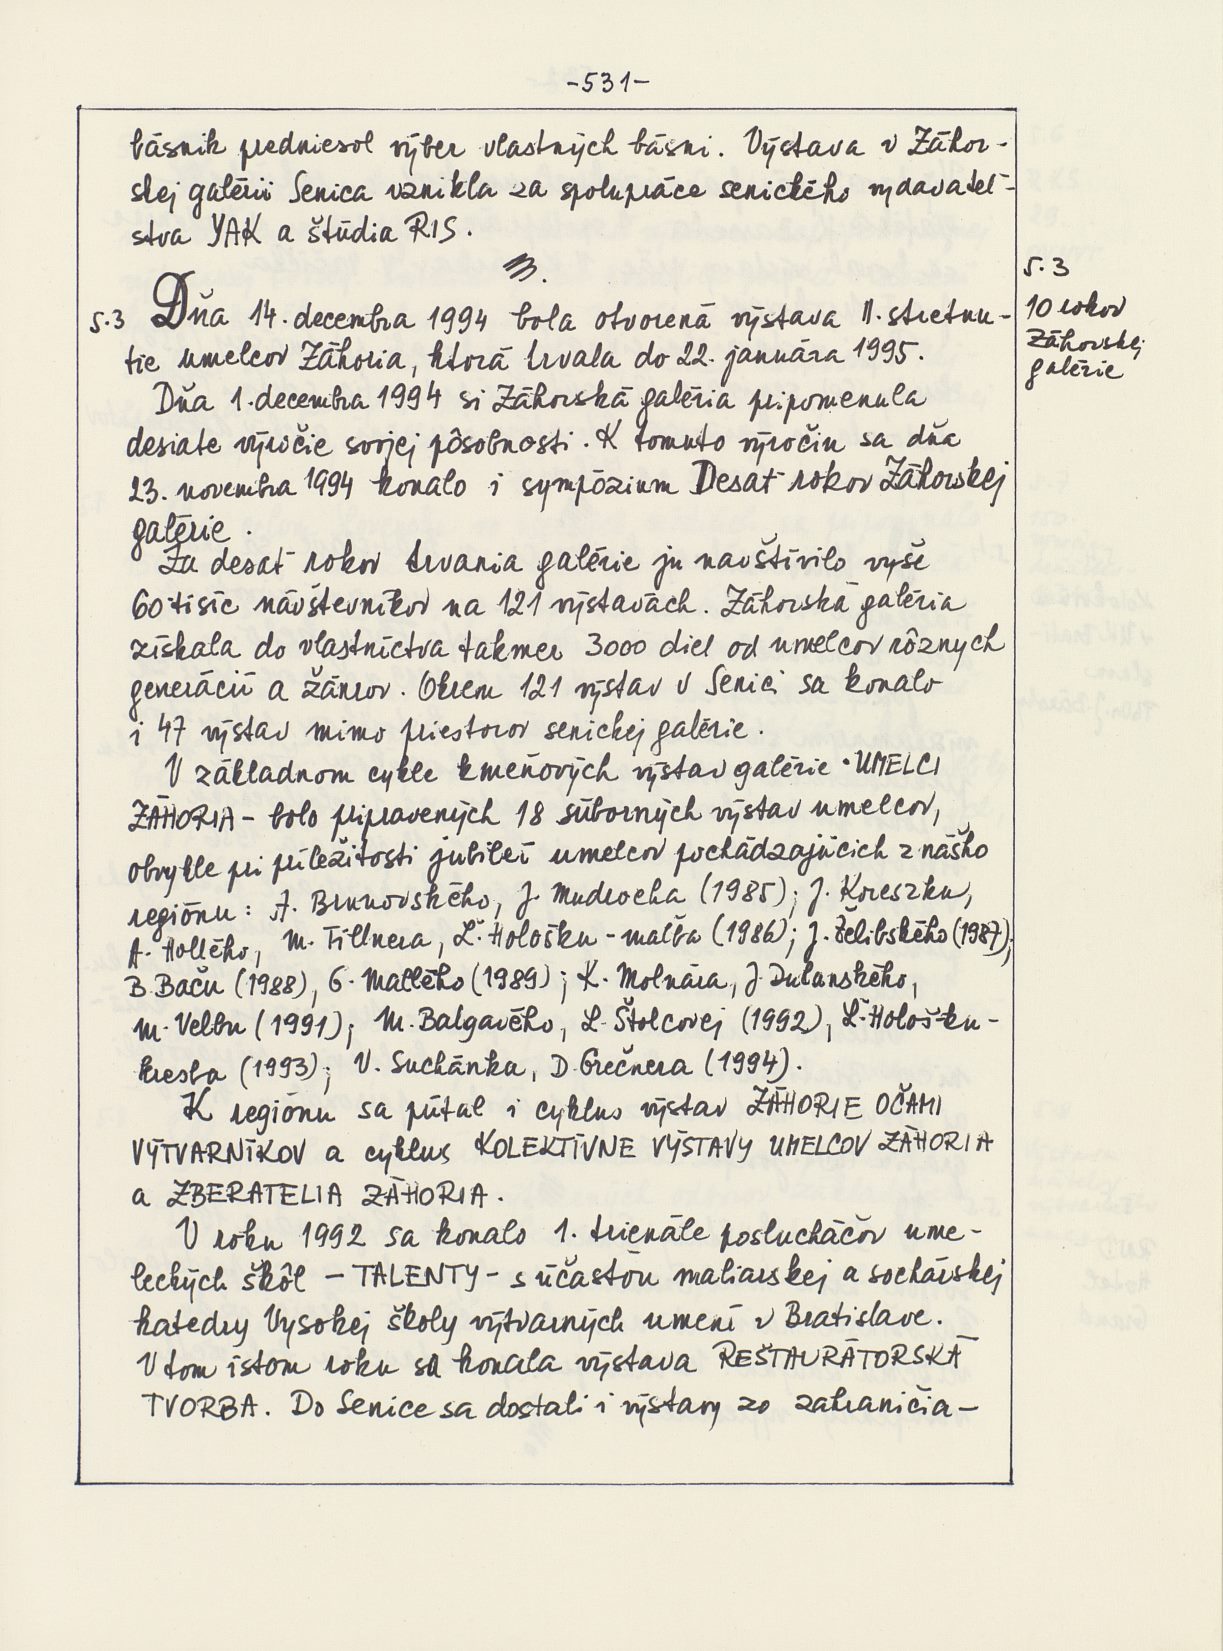 -531-
básnik predniesol výber vlastných básni. Výstava v Záhor-
skej galérii Senica vznikla za spolupráce senického vydavateľ-
stva YAK a štúdia RIS.
5.3
10 rokov
Záhorskej
galérie
5.3 Dňa 14. decembra 1994 bola otvorená výstava II. stretnu-
tie umelcov Záhoria, ktorá trvala do 22. januára 1995.
Dňa 1. decembra 1994 si Záhorská galéria pripomenula
desiate výročie svojej pôsobnosti. K tomuto výročiu sa dňa
23. novembra 1994 konalo i sympózium Desať rokov Záhorskej
galérie.
Za desať rokov trvania galérie ju navštívilo vyše
60 tisíc návštevníkov na 121 výstavách. Záhorská galéria
získala do vlastníctva takmer 3000 diel od umelcov rôznych
generácií a žánrov. Okrem 121 výstav v Senici sa konalo
i 47 výstav mimo priestorov senickej galérie.
V základnom cykle kmeňových výstav galérie • UMELCI
ZÁHORIA - bolo pripravených 18 súborných výstav umelcov,
obvykle pri príležitosti jubileí umelcov pochádzajúcich z nášho
regiónu: A. Brunovského, J. Mudrocha (1985); J. Koreszku,
A. Hollého, M. Tillnera, Ľ. Hološku - maľba (1986); J. Želibského (1987);
B. Baču (1988), G. Mallého (1989); K. Molnára, J. Dulanského,
M. Velbu (1991); M. Balgavého, L. Štolcovej (1992), Ľ. Hološku -
kresba (1993); V. Suchánka, D. Grečnera (1994).
K regiónu sa pútal i cyklus výstav ZÁHORIE OČAMI
VÝTVARNÍKOV a cyklus KOLEKTÍVNE VÝSTAVY UMELCOV ZÁHORIA
a ZBERATELIA ZÁHORIA.
V roku 1992 sa konalo 1. trienále poslucháčov ume-
leckých škôl - TALENTY - s účasťou maliarskej a sochárskej
katedry Vysokej školy výtvarných umení v Bratislave.
V tom istom roku sa konala výstava REŠTAURÁTORSKÁ
TVORBA. Do Senice sa dostali i výstavy zo zahraničia -